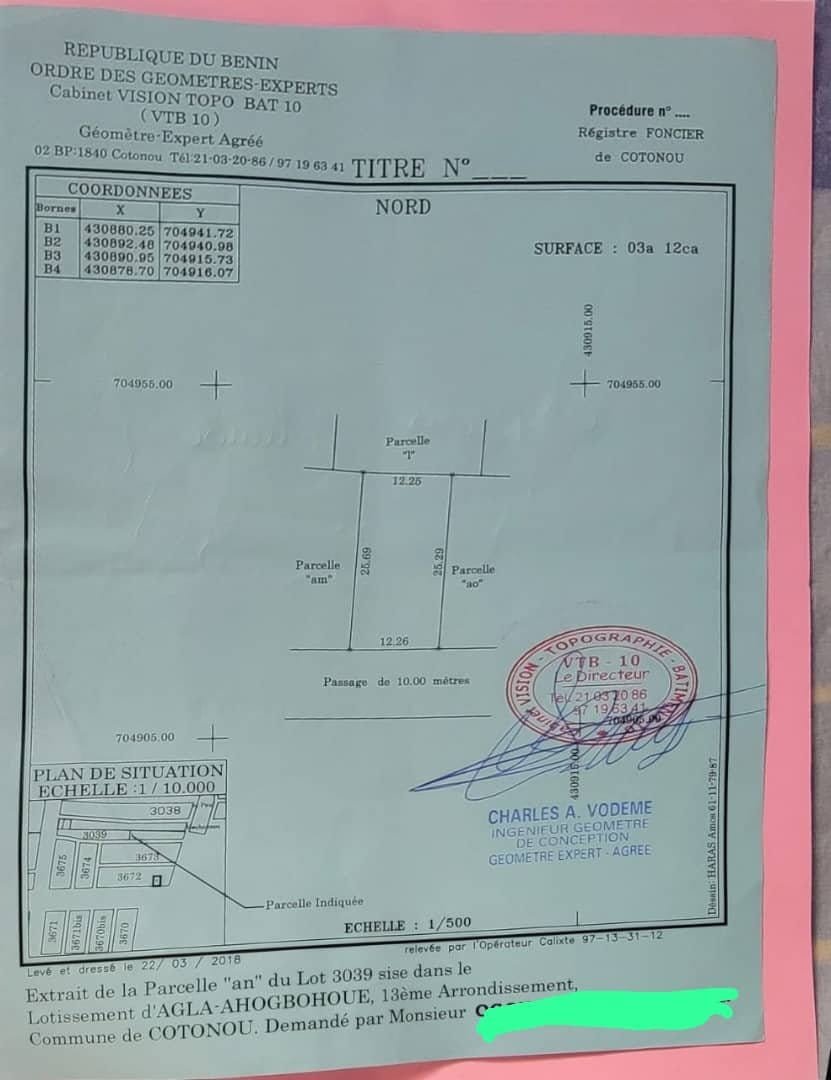 REPUBLIQUE DU BENIN
ORDRE DES GEOMETRES-EXPERTS
Cabinet VISION TOPO BAT 10
(VTB 10)
Géomètre-Expert Agréé
02 BP:1840 Cotonou Tél:21-03-20-86 / 97 19 63 41
Procédure n° ....
Régistre FONCIER
de COTONOU
TITRE N°___
COORDONNEES
Bornes X Y
B1 430880.25 704941.72
B2 430892.48 704940.98
B3 430890.95 704915.73
B4 430878.70 704916.07
NORD
SURFACE : 03a 12ca
430915.00
704955.00
704955.00
Parcelle
"l"
12.25
Parcelle
"am"
25.69
25.29
Parcelle
"ao"
12.26
Passage de 10.00 mètres
704905.00
704905.00
430915.00
Cabinet VISION - TOPOGRAPHIE - BATIMENT
VTB - 10
Le Directeur
Tél. 21 03 20 86
97 19 63 41
CHARLES A. VODEME
INGENIEUR GEOMETRE
DE CONCEPTION
GEOMETRE EXPERT - AGREE
Déssin: HARAS Amos 61-11-79-87
PLAN DE SITUATION
ECHELLE :1 / 10.000
3038
3039
3675
3674
3673
3672
3671
3671bis
3670bis
3670
Parcelle Indiquée
ECHELLE : 1/500
relevée par l'Opérateur Calixte 97-13-31-12
Levé et dressé le 22/ 03 / 2018
Extrait de la Parcelle "an" du Lot 3039 sise dans le
Lotissement d'AGLA-AHOGBOHOUE, 13ème Arrondissement,
Commune de COTONOU. Demandé par Monsieur